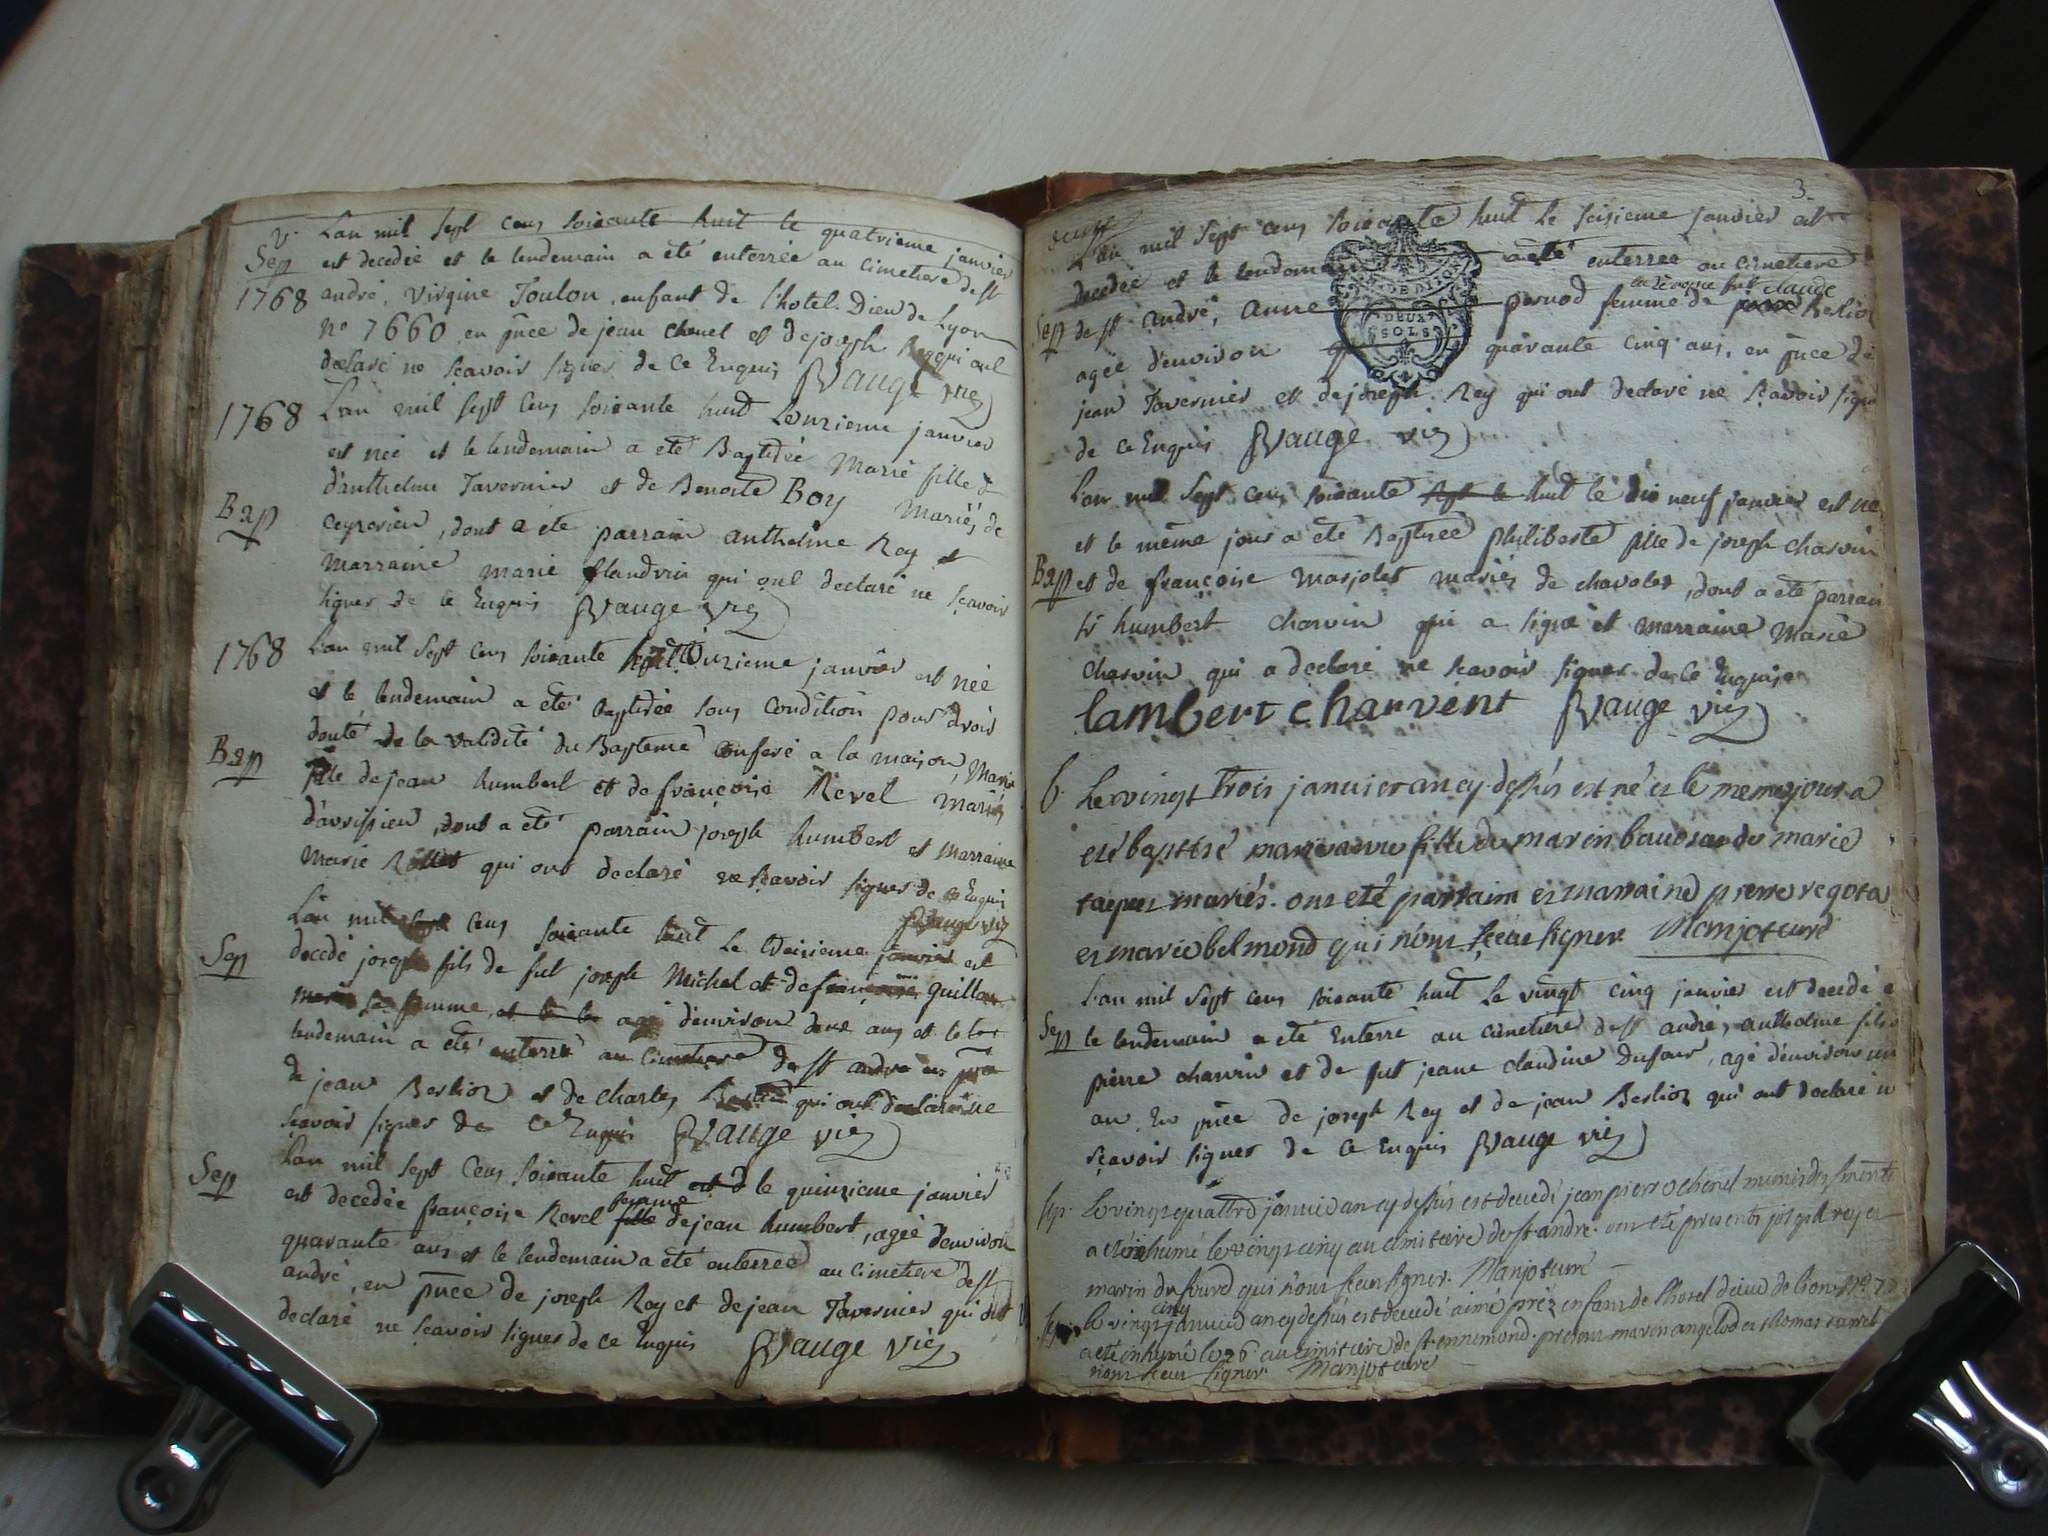 v.
Sep
1768
L'an mil sept cens soixante huit le quatrieme janvier
est decedée et le lendemain a eté enterrée au cimetiere de st
andré, Virgine Toulon, enfant de l'hotel-Dieu de Lyon
n° 7660, en pñce de jean chenel et de joseph Rey qui ont
declaré ne scavoir signer de ce Enquis Vauge vic
1768
Bap
L'an mil sept cens soixante huit Lonzieme janvier
est née et le lendemain a eté Baptisée Marie fille d
d'anthelme Tavernier et de Benoite Boy Mariés de
ceyzerieu, dont a eté parrain anthelme Rey et
Marraine marie flandrin qui ont declaré ne scavoir
signer de ce Enquis Vauge vic
1768
Bap
L'an mil sept cens soixante huit Onzieme janvier est née
et le lendemain a eté baptisée sous condition pour avoir
douté de la validité du Bapteme conferé a la maison, Marie
fille de jean humbert et de françoise Revel mariés
d'avrissieu, dont a eté parrain joseph humbert et marraine
Marie qui ont declaré ne scavoir signer de ce Enquis
Vauge vic
Sep
L'an mil sept cens soixante huit Le treisieme janvier est
decedé joseph fils de fut joseph Michel et de françoise guillon
sa femme, et le le agé d'environ deux ans et le
lendemain a eté enterré au cimetiere de st andré en pñce
de jean Berlioz et de charles qui ont declaré ne
scavoir signer de ce Enquis Vauge vic
Sep
L'an mil sept cens soixante huit le quinzieme janvier
est decedée françoise Revel femme fille de jean humbert, agée d'environ
quarante ans et le lendemain a eté enterrée au cimetiere de st
andré, en pñce de joseph Rey et de jean Tavernier qui ont
declaré ne scavoir signer de ce Enquis Vauge vic
3
L'an mil sept cens soixante huit le seisieme janvier est
decedée et le lendemain a eté enterrée au cimetiere
DEUX
SOLS
Sep
de st andré, anne pernod femme de claude Berlioz
agée d'environ quarante cinq ans, en pñce de
jean Tavernier et de joseph Rey qui ont declaré ne scavoir signe
de ce Enquis Vauge vic
L'an mil sept cens soixante sept le huit le dix neuf janvier est né
et le même jour a eté Baptisée philiberte fille de joseph charvin
Bap
et de françoise marjolet mariés de chavolet, dont a eté parrain
sr humbert charvin qui a signé et marraine Marie
charvin qui a declaré ne scavoir signer de ce Enquise
lambert charvent Vauge vic
b.
Le vingt trois janvier an cy-dessus est né et le meme jour a
eté baptisé marie anne fille de marin baudran de marie
mariés. ont eté parrain et marraine pierre
et marie belmond qui n'ont sceu signer. Manjot curé
Sep
L'an mil sept cens soixante huit Le vingt cinq janvier est decedé e
le lendemain a eté Enterré au cimetiere de st andré, anthelme fils d
pierre charvin et de fut jeane claudine Dufour, agé d'environ un
an, en pñce de joseph Rey et de jean Berlioz qui ont declaré n
scavoir signer de ce Enquis Vauge vic
sep.
Le vingt quattre janvier an cy dessus est decedé jean pierre chenel muni des sacrements
a eté inhumé le vingt cinq au cimitiere de st andré. ont eté presents joseph rey et
marin du four qui n'ont sceu signer. Manjot curé
Le vingt cinq janvier an cy dessus est decedé aimé enfant de l'hotel dieu de lion n° 7
a eté inhumé le 26 au cimitiere de st ennemond. presents marin et thomas
n'ont sceu signer. Manjot curé